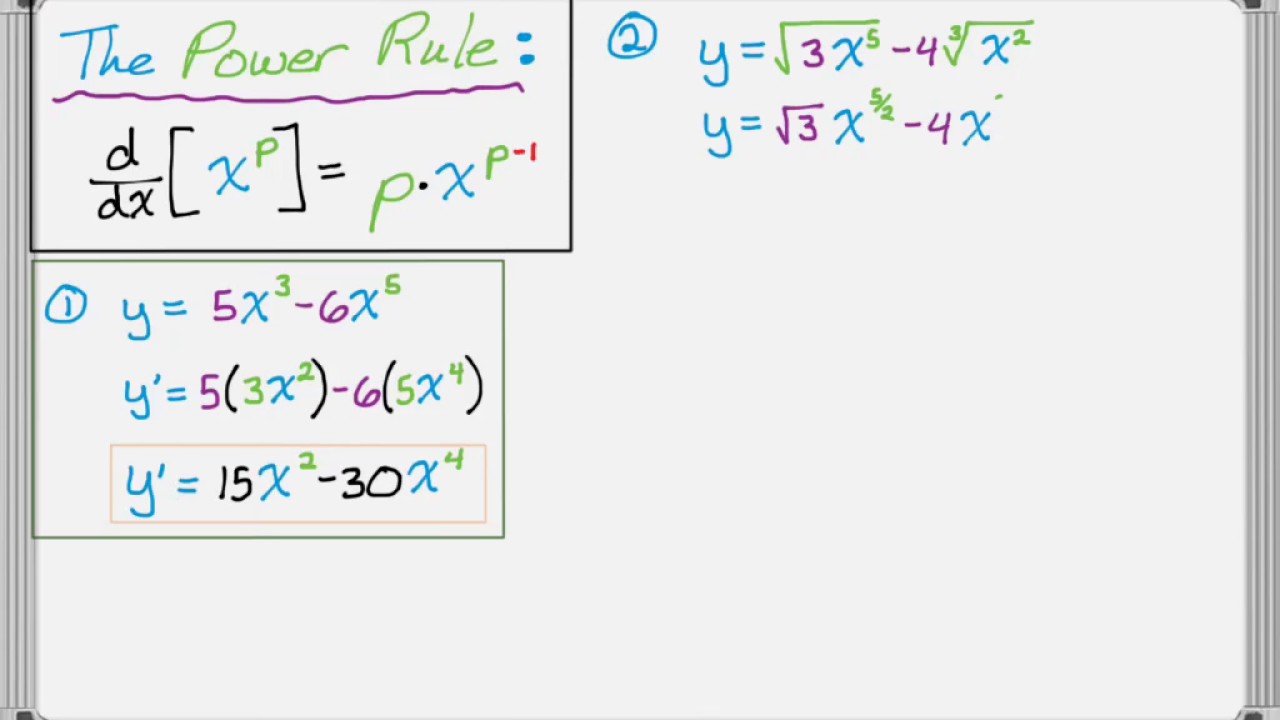 The Power Rule:
d/dx [x^p] = p·x^(p-1)
① y = 5x³-6x⁵
y' = 5(3x²)-6(5x⁴)
y' = 15x²-30x⁴
② y = √(3x⁵) -4∛(x²)
y = √3 x^(5/2) -4x